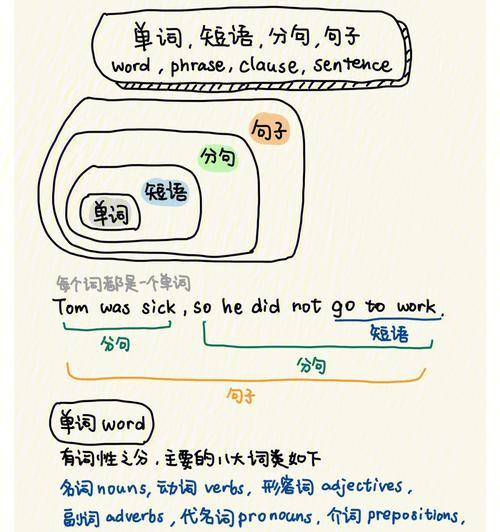 单词,短语,分句,句子
word, phrase, clause, sentence
句子
分句
短语
单词
每个词都是一个单词
Tom was sick, so he did not go to work.
短语
分句
分句
句子
单词 word
有词性之分,主要的八大词类如下
名词 nouns, 动词 verbs, 形容词 adjectives,
副词 adverbs, 代名词 pronouns, 介词 prepositions,